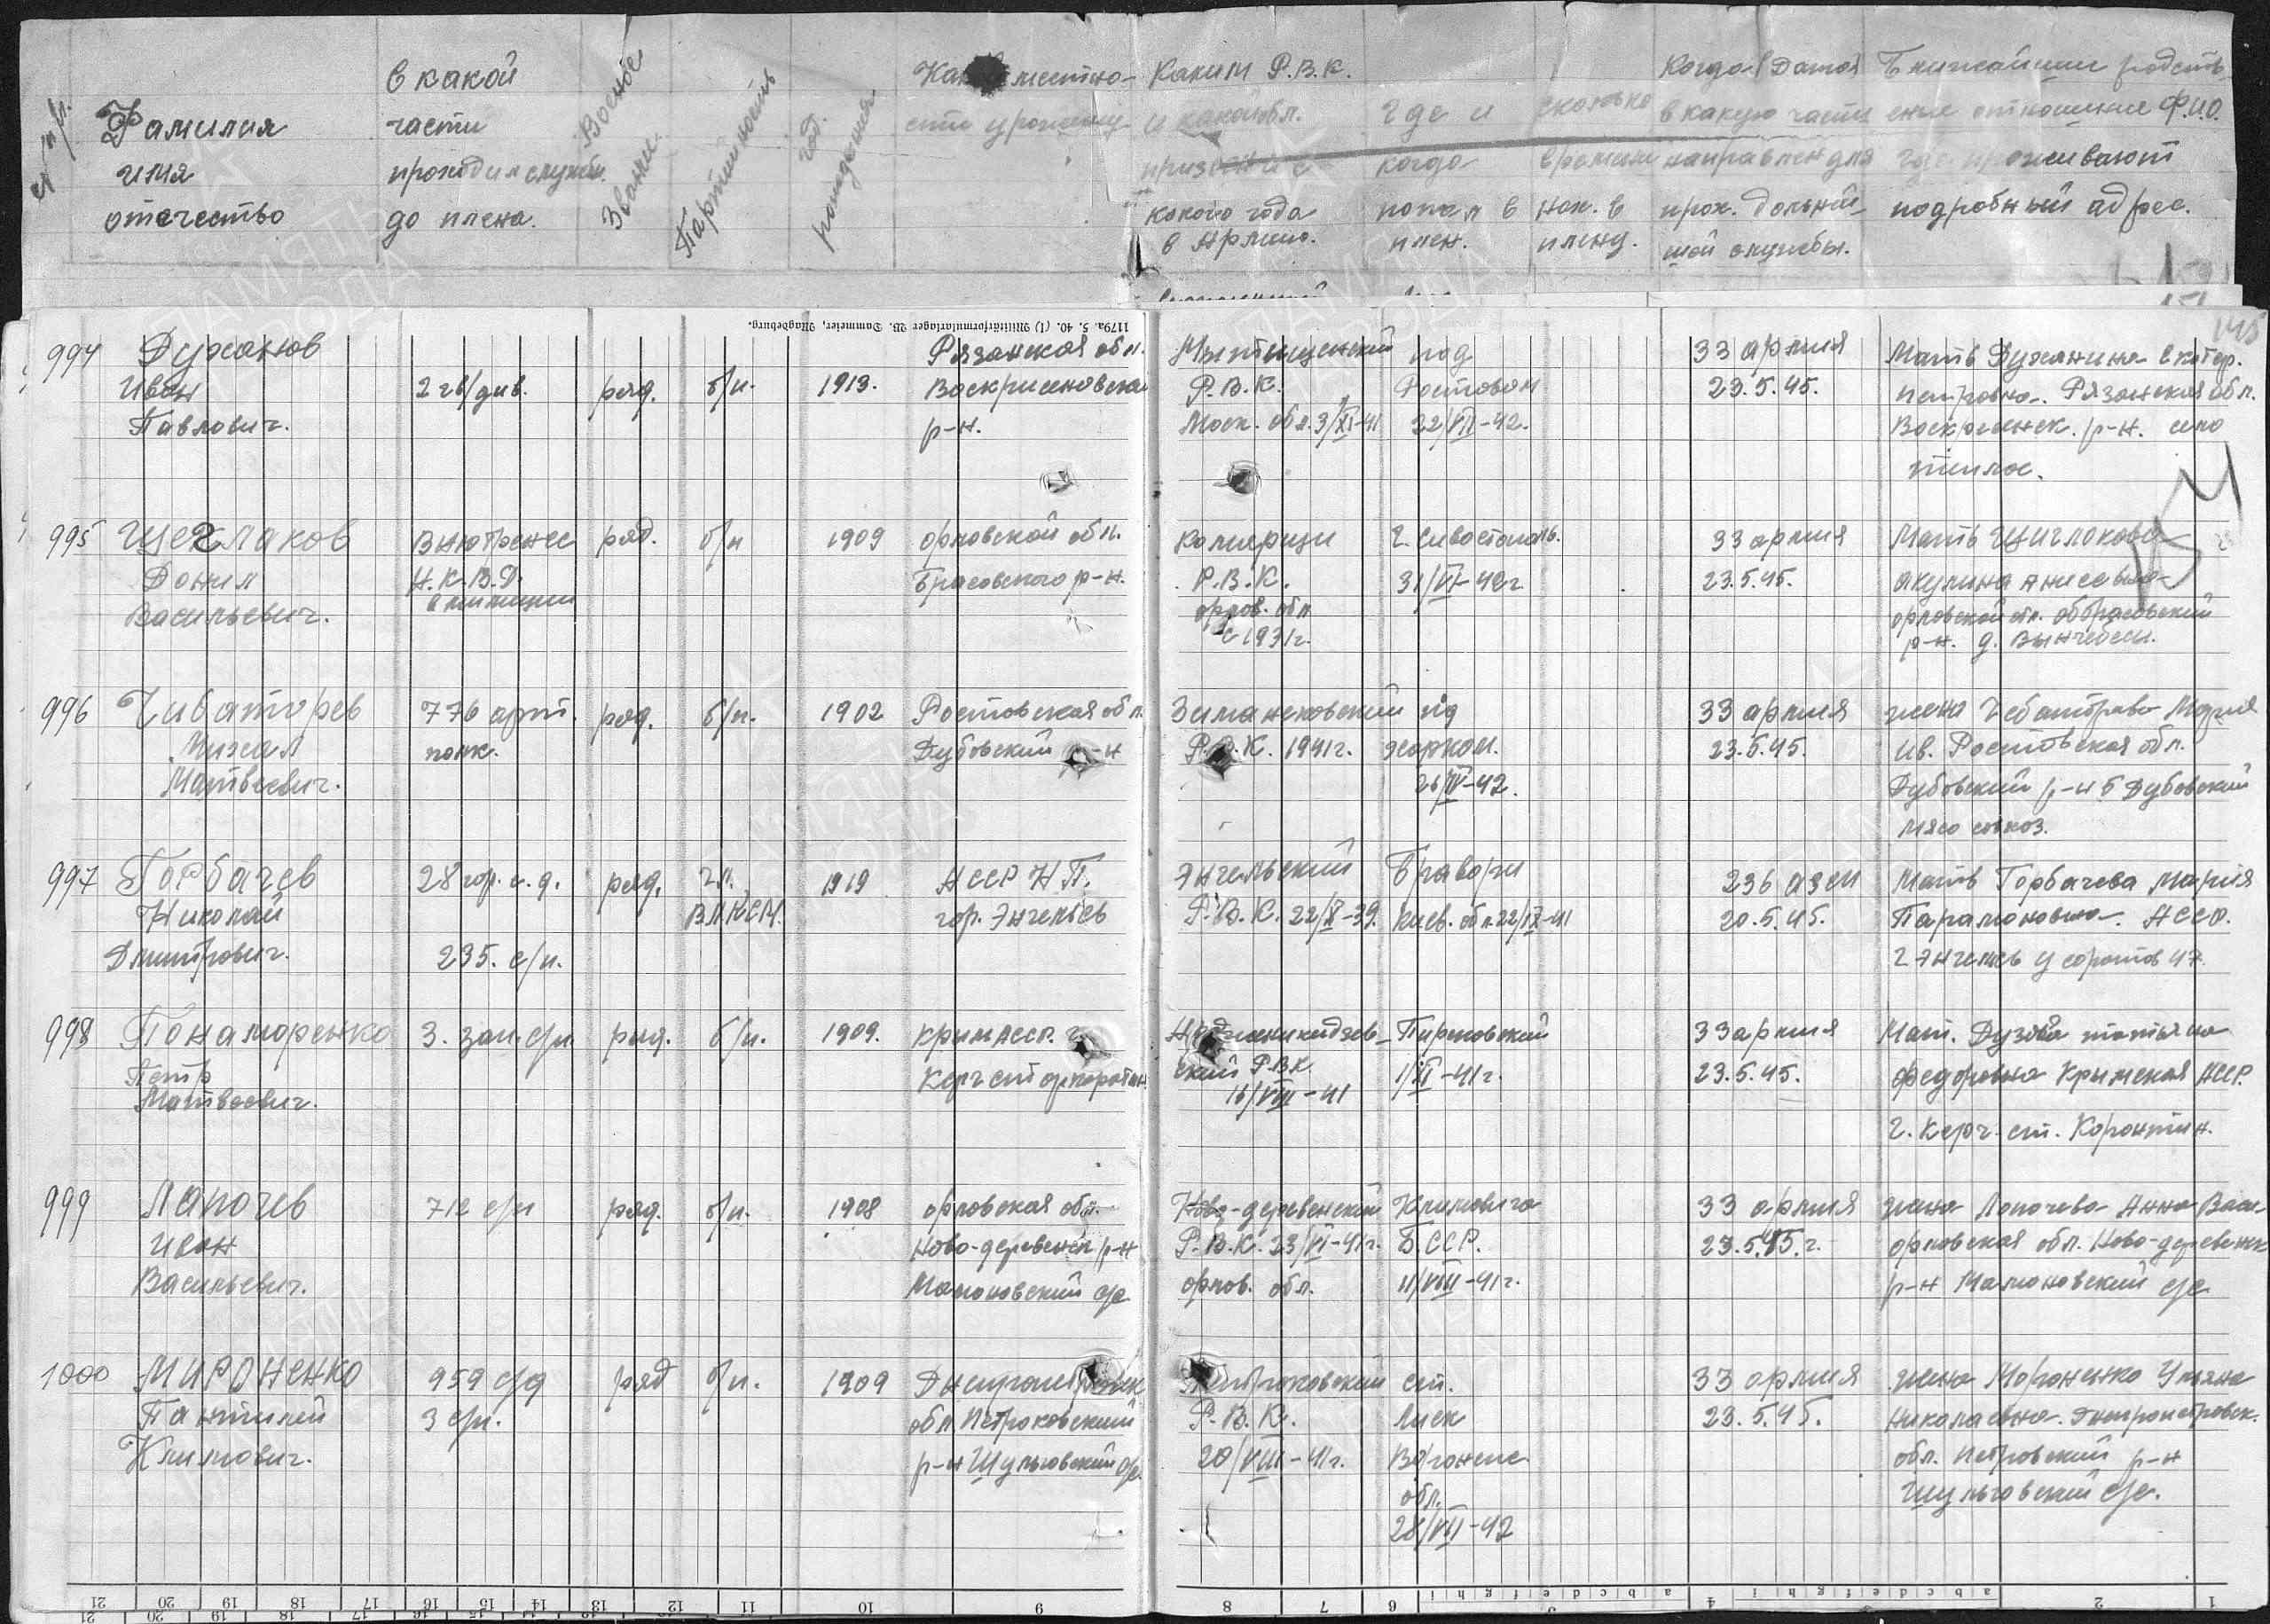 № п/п.
Фамилия
имя
отчество
в какой
части
проходил служб.
до плена.
Военное
Звание.
Партийность
год.
рождения
местно-
сти урожениц
Каким Р.В.К.
и какой обл.
призван и с
какого года
в Армию.
где и
когда
попал в
плен.
сколько
времени
нах. в
плену.
Когда Дата
в какую часть
направлен для
прох. дольней-
шей службы.
Ближайшии родств-
еные отношения Ф.И.О.
где проживают
подробный адрес.
1179a. 5. 40. (I) Militärformularlager W. Dammeier, Magdeburg.
994
Духанов
Иван
Павлович.
2 гв/див.
ряд.
б/п.
1913.
Рязанская обл.
р-н.
Мытищенский
Р.В.К.
Моск. обл. 3/XI-41
под
Ростовом
22/VII-42.
33 армия
23.5.45.
Мать Духанина Екатер.
Петровна. Рязанская обл.
Воскресенск. р-н. село
995
Щеглаков
Данил
Васильевич.
Внютренес
Н.К.В.Д.
в милиции
ряд.
б/п
1909
орловской обл.
Брасовского р-н.
Комарици
Р.В.К.
орлов. обл
с 1931г.
г. Сивостополь.
31/VI-42г.
33 армия
23.5.45.
Мать Щиглокова
акулина
орловской обл.
р-н. д.
996
Чиваторев
Михал
Матвеевич.
776 арт.
полк.
ряд.
б/п.
1902
Ростовская обл.
Дубовский р-н
Зимановский
Р.В.К. 1941г.
под
харком.
26/IV-42.
33 армия
23.5.45.
жена Чебаторева Мария
Ив. Ростовская обл.
Дубовский р-н 5 Дубовский
мясо совхоз.
997
Горбачев
Николай
Дмитрович.
28 гор. с.д.
235. с/п.
ряд.
чл.
ВЛКСМ.
1919
АССР Н.П.
гор. Энгельсь
Энгельский
Р.В.К. 22/X-39.
Бравори
Киев. обл. 22/IX-41
236 азсп
20.5.45.
Мать Горбачева Мария
Парамоновна. АССР.
г Энгельсь у соротов 47.
998
Понаморенко
Петр
Матвеевич.
3. зап. с/п
ряд.
б/п.
1909.
крим АССР. г.
Керч ст
ский РВК
16/VIII-41
Пирповский
1/XI-41г.
33 армия
23.5.45.
Мат. Дузова татьяна
федоровна Крымская АССР.
г. Керч. ст. Карантин.
999
Лапочев
Иван
Васильевич.
712 с/п
ряд.
б/п.
1908
орловская обл.
Ново-деревенск р-н
Мамоновский с/с
Ново-деревенский
Р.В.К. 23/VI-41г.
орлов. обл.
Климовича
Б.ССР.
11/VIII-41г.
33 армия
23.5.45.г.
жена Лопочева Анна Вас.
орловская обл. Ново-деревенск
р-н Мамоновский с/с
1000
Мироненко
Пантилей
Климович.
959 с/д
3 с/п.
ряд
б/п.
1909
Днипропетровск
обл. Петроковский
р-н Шульговский с/с.
Петроковский
Р.В.К.
20/VIII-41г.
ст.
Лиск
Воронене
обл.
28/VII-42
33 армия
23.5.45.
жена Мороненко Ульяна
Николаевна. Днепропетровск.
обл. Петровский р-н
Шульговский с/с.
21 20 19 18 17 16 15 14 13 12 11 10 9 8 7 6 5 4 3 2 1